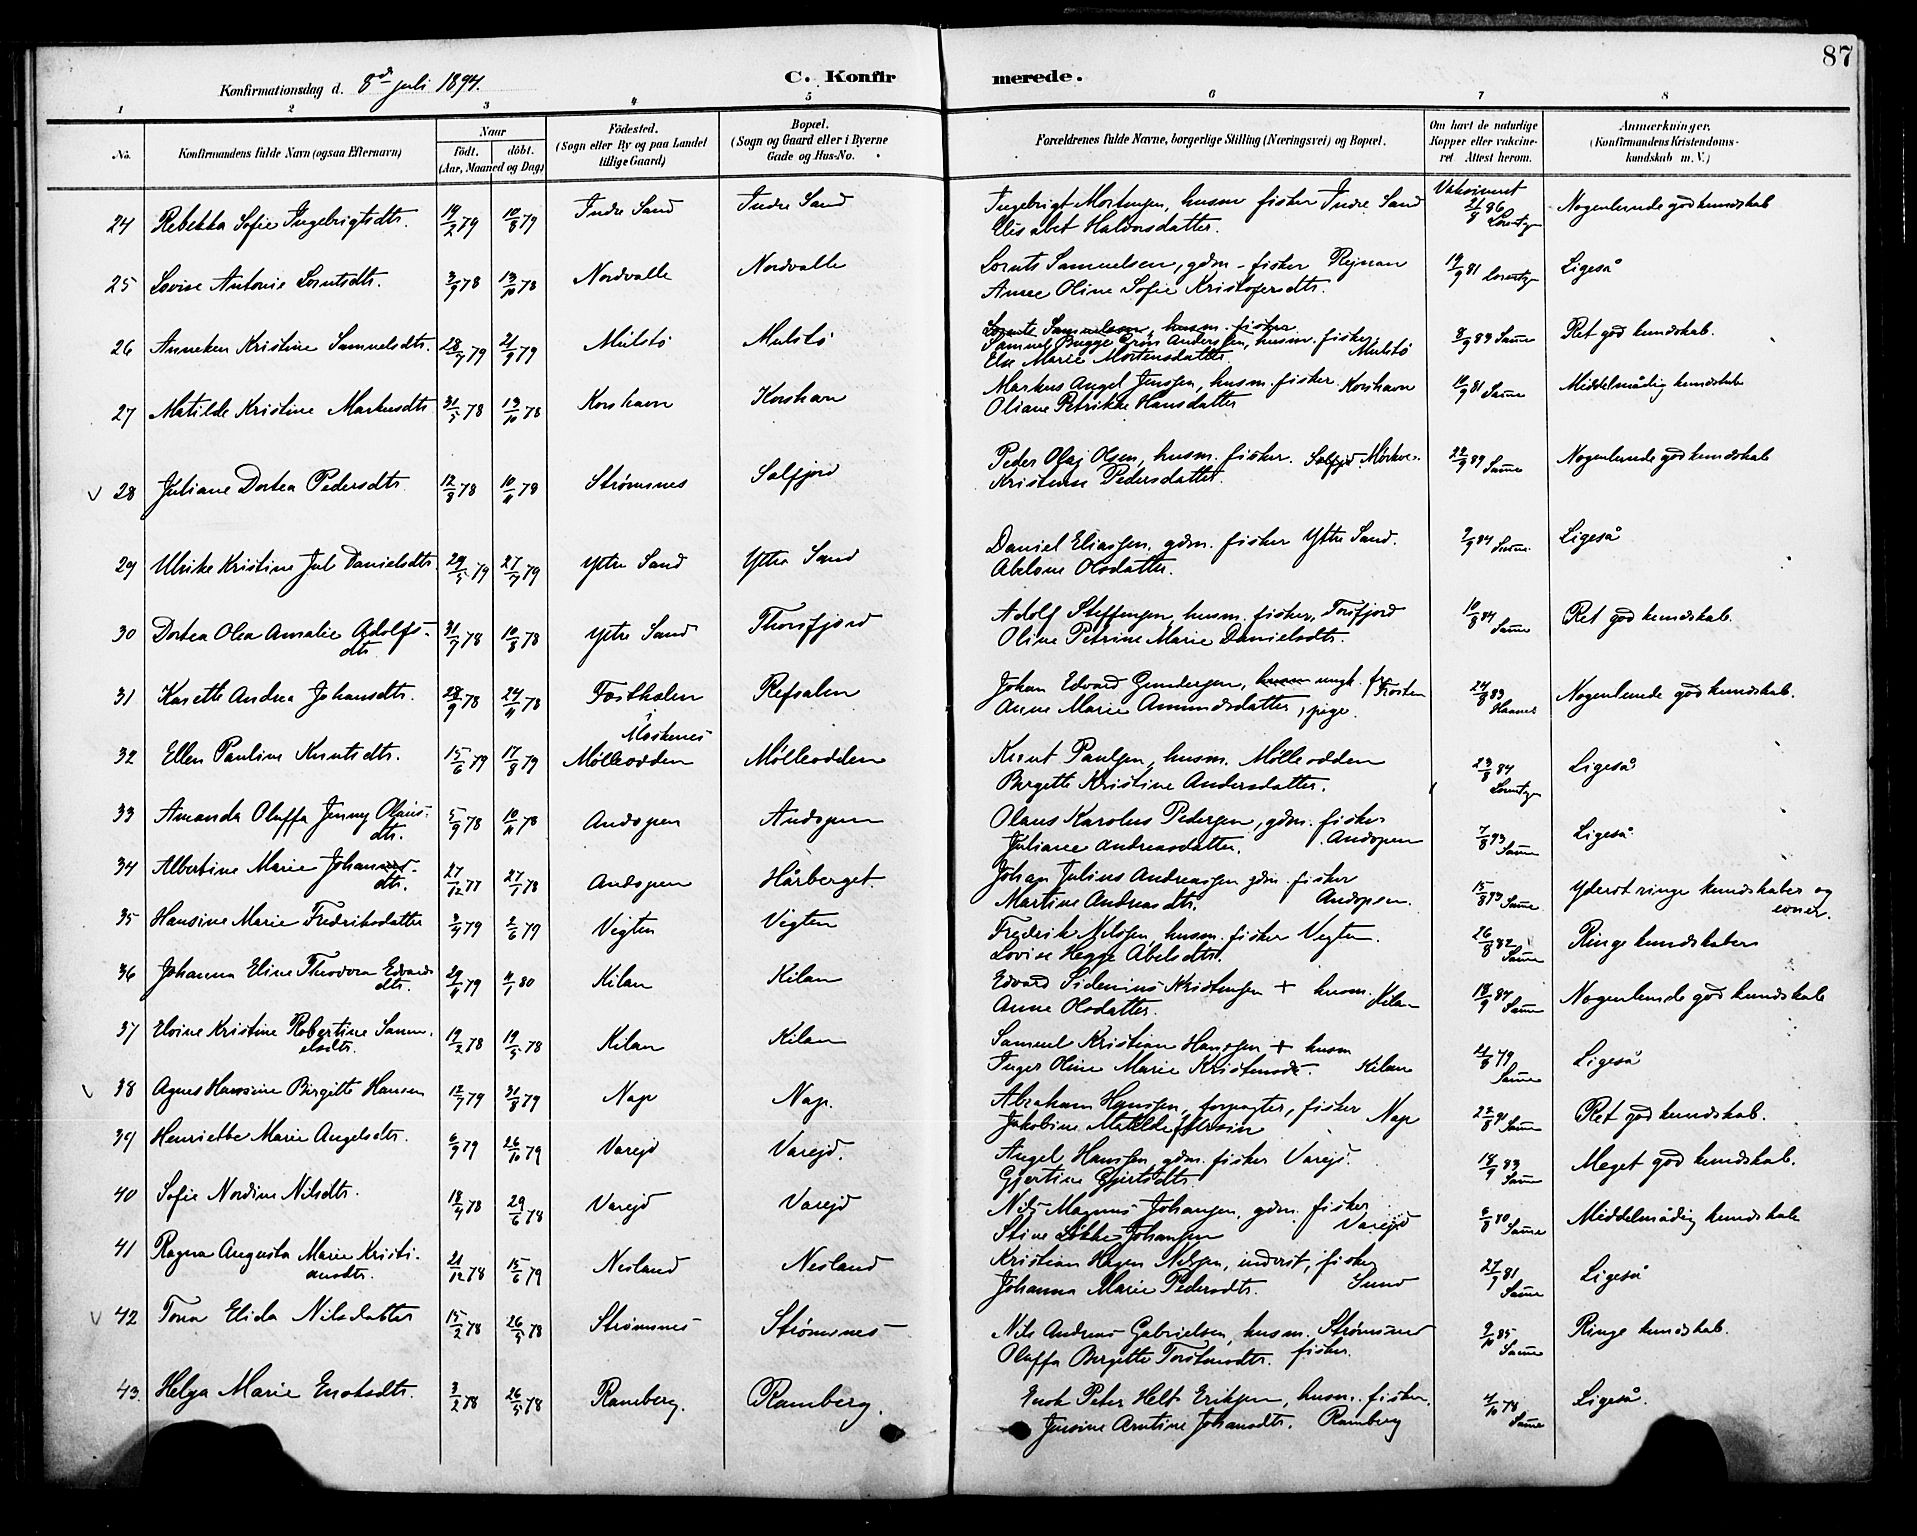 87
Konfirmationsdag d. 8de juli 1894.
C. Konfirmerede.
1 2 3 4 5 6 7 8
No. Konfirmandens fulde Navn (ogsaa Efternavn) Naar født. døbt. (Aar, Maaned og Dag) Fødested. (Sogn eller By og paa Landet tillige Gaard) Bopæl. (Sogn og Gaard eller i Byerne Gade og Hus-No. Forældrenes fulde Navne, borgerlige Stilling (Næringsvei) og Bopæl. Om havt de naturlige Kopper eller vakcineret Attest herom. Anmærkninger. (Konfirmandens Kristendomskundskab m. V.)
24 Rebekka Sofie Ingebrigtsdtr. 19/2 79 10/8 79 Indre Sand Indre Sand Ingebrigt Mortensen, husm fisker Indre Sand Vakcineret 21/8 86 Nogenlunde god kundskab
Elisabet Haldorsdatter. Lorentzen
25 Lovise Antonie Lorntsdtr. 3/9 78 13/10 78 Nordvalle Nordvalle Lornts Samuelsen, gdm - fisker 19/9 81 Lorentzen Ligeså
Anne Oline Sofie Kristofersdtr.
26 Anneken Kristine Samuelsdtr. 28/7 79 21/9 79 Mulstø Mulstø Lornts Samuelsen, husm. fisker 8/9 83 Samme Ret god kundskab.
Samuel Bugge Grøn Anderssen, husm. fisker
Else Marie Mortensdatter. Mulstø
27 Matilde Kristine Markusdtr 31/5 78 13/10 78 Korshavn Korshavn Markus Angel Jenssen, husm. fisker Korshavn 10/9 81 Samme Middelmådig kundskab
Oliane Petrikke Hansdatter
28 Juliane Dortea Pedersdtr. 12/8 78 10/11 78 Strømsnes Solfjord Peder Olaj Olsen, husm. fisker. 22/9 89 Samme Nogenlunde god kundskab
Kristense Pedersdatter.
29 Ulrikke Kristine Jul Danielsdtr 29/5 79 27/7 79 Ytre Sand Ytre Sand Daniel Eliassen, gdm. fisker Ytre Sand. 9/9 84 Samme Ligeså
Abelone Olsdatter.
30 Dortea Olea Amalie Adolfsdtr 31/7 78 10/8 78 Ytre Sand Thorsfjord Adolf Steffensen, husm. fisker, Torsfjord 10/8 84 Samme Ret god kundskab.
Oline Petrine Marie Danielsdtr.
31 Kasette Andrea Johansdtr. 28/9 78 24/11 78 i Moskenes Refsalen Johan Edvard Gundersen, husm ungk. 24/8 83 Nogenlunde god kundskab.
Anne Marie Amundsdatter, pige.
32 Ellen Pauline Knutsdtr. 15/6 79 17/8 79 Mølleodden Mølleodden Knut Paulsen, husm. Mølleodden 23/8 84 Lorentzen Ligeså
Bergette Kristine Andersdatter.
33 Amanda Oluffa Jenny Olausdtr. 5/9 78 10/11 78 Andopen Andopen Olaus Karolus Pedersen, gdm. fisker 7/8 93 Samme Ligeså
Juliane Andreasdatter. Andopen
34 Albertine Marie Johansdtr. 27/12 77 27/1 78 Andopen Hårberget. Johan Julius Andreassen gdm. fisker 15/8 83 Samme Yderst ringe kundskaber og evner.
Martine Andreasdtr. Andopen.
35 Hansine Marie Fredriksdatter 3/4 79 2/6 79 Vigten Vigten Fredrik Nilssen, husm. fisker Vigten. 26/8 82 Samme Ringe kundskaber
Lovise Hegge Abelsdtr.
36 Johanna Eline Theodora Edvardsdtr. 29/11 79 4/1 80 Kilan Kilan Edvard Sidenius Kristensen + husm. Kilan 18/9 84 Samme Nogenlunde god kundskab
Anne Olsdatter.
37 Elvine Kristine Robertine Samuelsdtr. 19/2 78 19/5 78 Kilan Kilan Samuel Kristian Hanssen + husm 21/8 79 Samme Ligeså
Inger Oline Marie Kristensdtr. Kilan
38 Agnes Hansine Birgitte Hansen 12/7 79 31/8 79 Nap Nap. Abraham Hanssen, forpagter, fisker Nap 22/8 91 Samme Ret god kundskab.
Jakobine Matilde
39 Henriette Marie Angelsdtr. 6/9 79 26/10 79 Varejd Varejd. Angel Hanssen, gdm. fisker Varejd. 18/9 83 Samme Meget god kundskab.
Gjertine Gjertsdtr
40 Sofie Nordine Nilsdtr. 18/4 78 29/6 78 Varejd Varejd Nils Magnus Johansen, gdm. fisker 6/8 80 Samme Middelmådig kundskab
Stine Løkke Johansen Varejd
41 Ragna Augusta Marie Kristiansdtr. 21/12 78 15/6 79 Nesland Nesland Kristian Hagen Nilsen, inderst, fisker 27/9 81 Samme Ligeså
Johanna Marie Pedersdtr. Sund
42 Tona Elida Nilsdatter 15/2 78 26/5 78 Strømsnes Strømsnes Nils Andreas Gabrielsen, husm. Strømsnes 9/10 85 Samme Ringe kundskab.
Oluffa Bergitte Torstensdtr. fisker.
43. Helga Marie Enoksdtr. 3/2 78 26/5 78 Ramberg. Ramberg. Enok Peter Helt Eriksen, husm. fisker. 4/10 78 Samme Ligeså.
Jensine Arntine Johansdtr. Ramberg